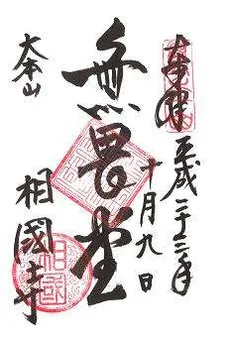 奉拝 平成二十二年
十月九日
無畏堂
大本山
相國寺